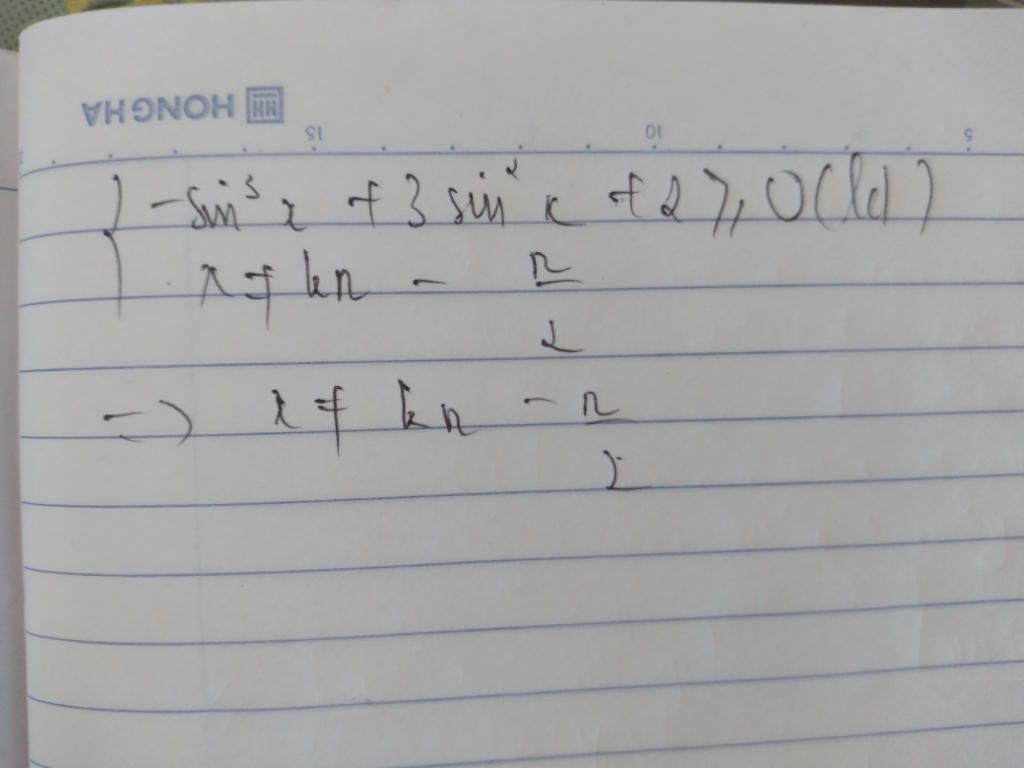 HONG HA
15 10 5
{ -sin³x + 3 sin²x + 2 ≥ 0 (lđ)
x ≠ kπ - π/2
=> x ≠ kπ - π/2